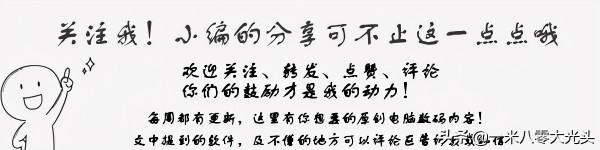 关注我！小编的分享可不止这一点点哦
欢迎关注、转发、点赞、评论
你们的鼓励才是我的动力！
每周都有更新，这里有你想要的原创电脑数码内容！
文中提到的软件，及不懂的地方可以评论区告
头条 @一米八零大光头